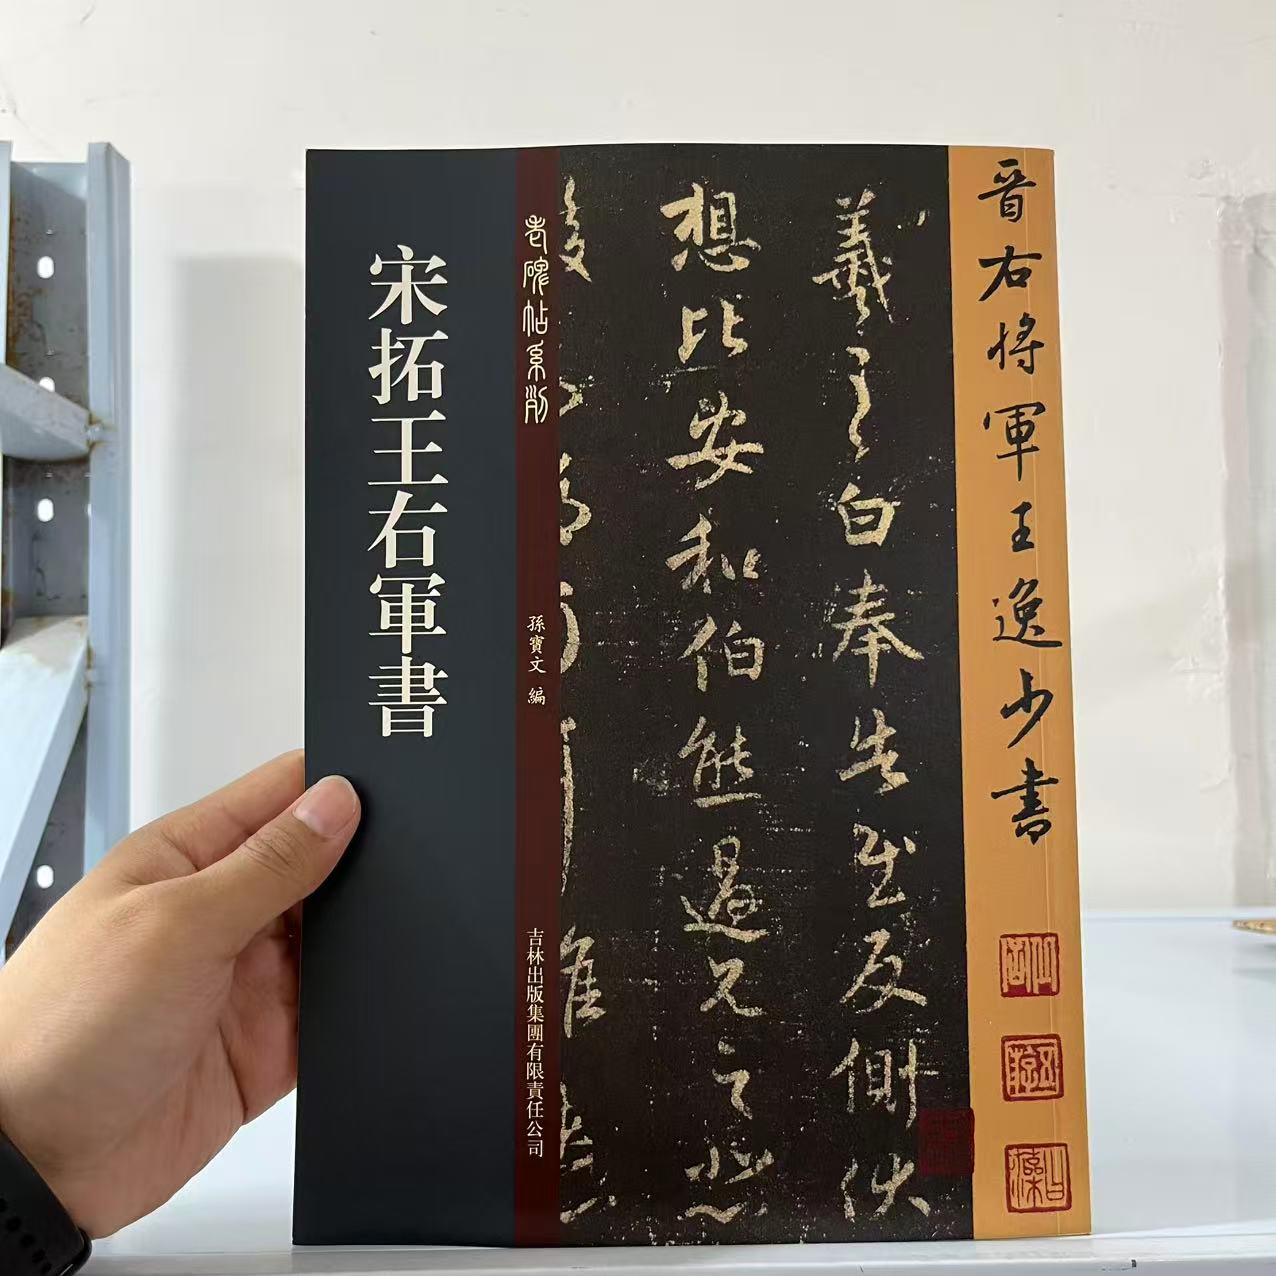 宋拓王右軍書
老碑帖系列
孫寶文 編
吉林出版集團有限責任公司
晋右将軍王逸少書
羲之白奉告慰反側伏
想比安和伯熊過見之悲